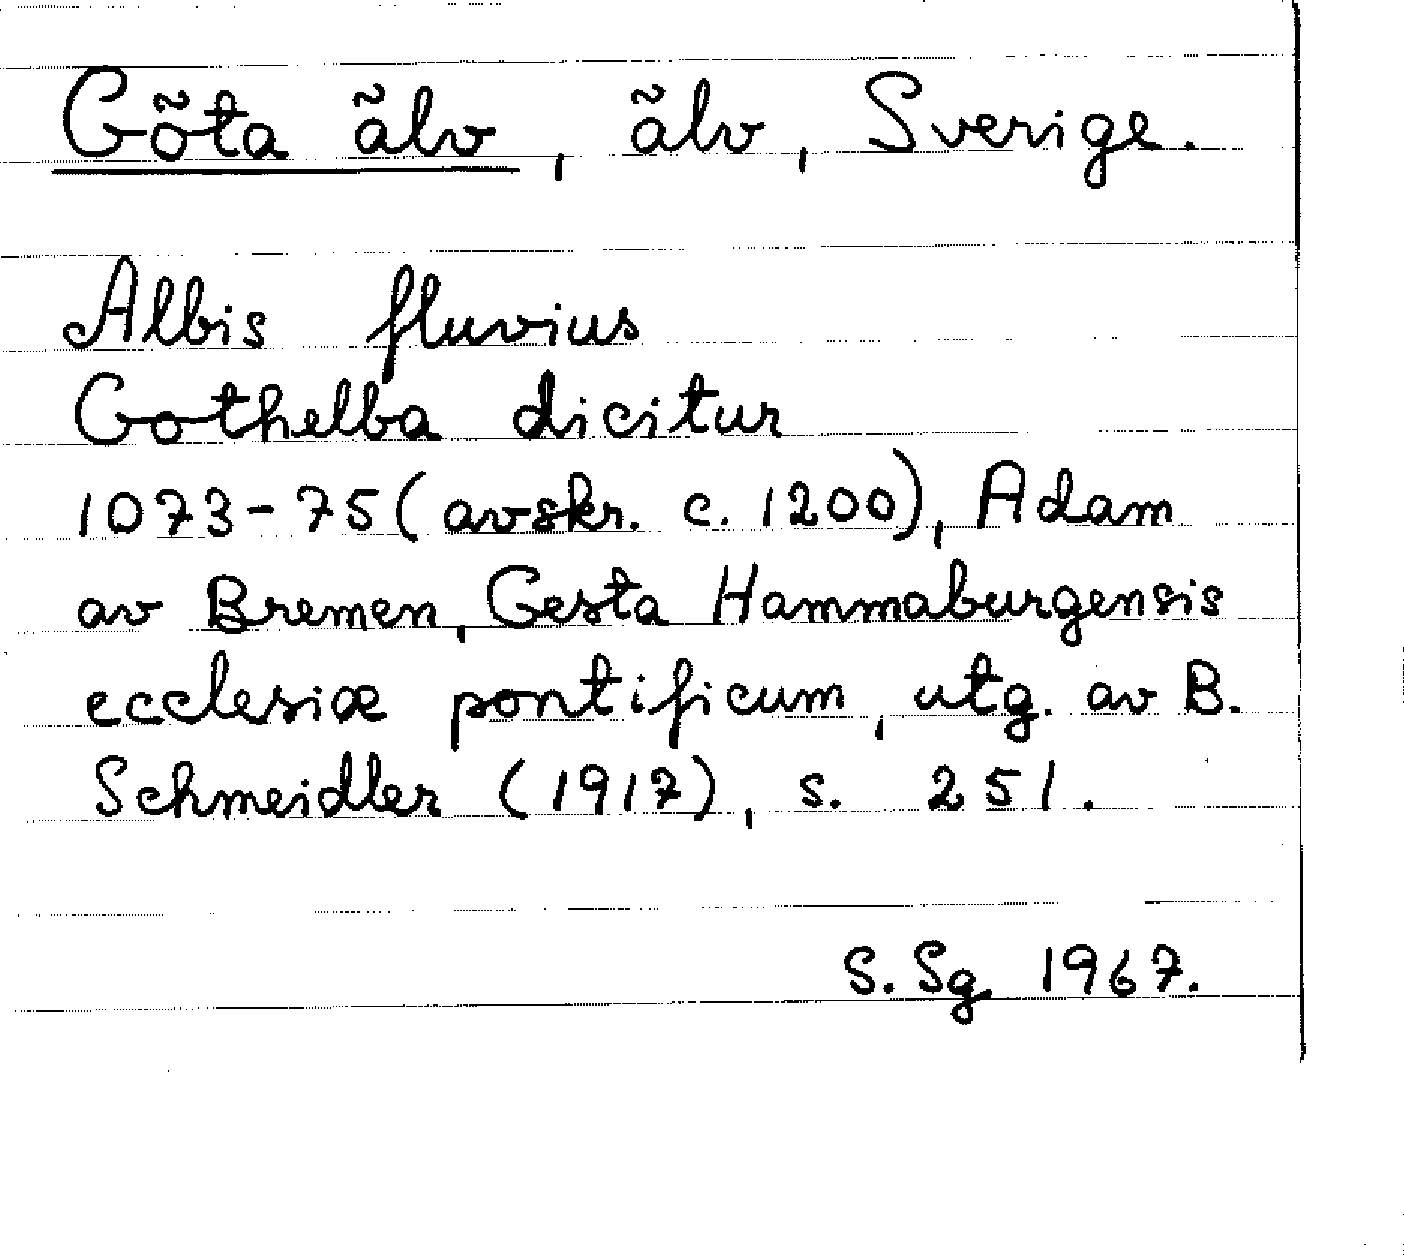 Göta älv, älv, Sverige.
Albis fluvius
Gothelba dicitur
1073-75 (avskr. c. 1200), Adam
av Bremen, Gesta Hammaburgensis
ecclesiæ pontificum, utg. av B.
Schmeidler (1917), s. 251.
S. Sg 1967.